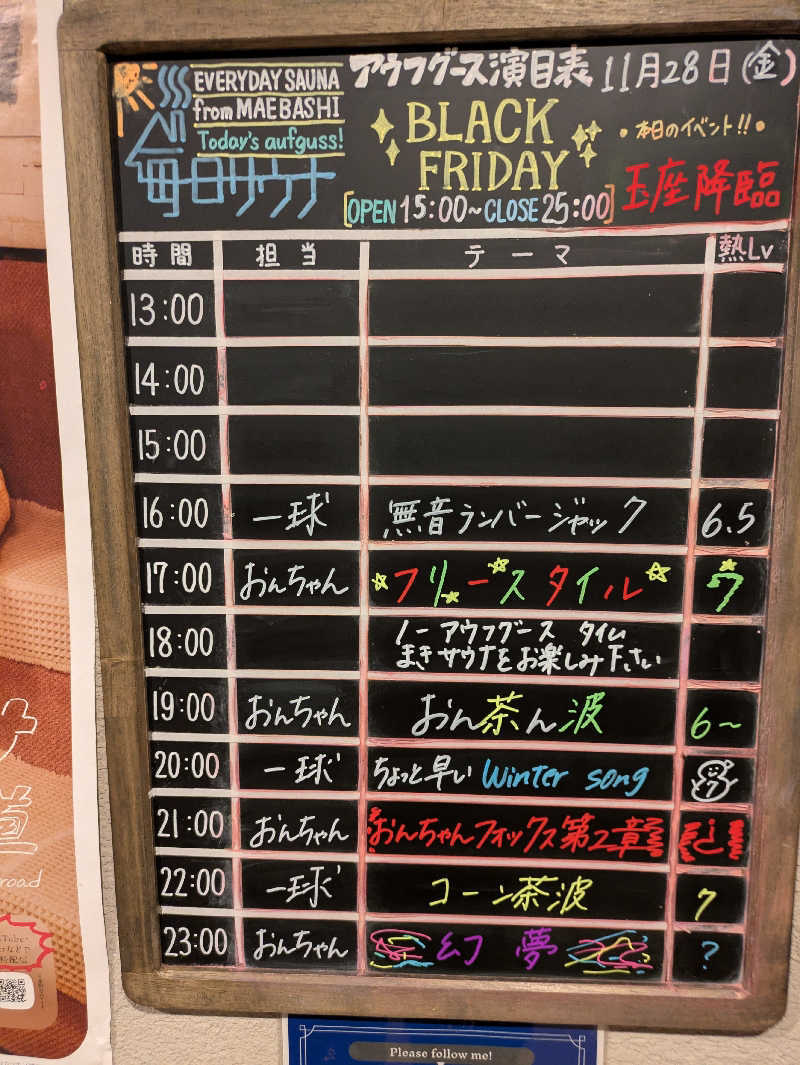 EVERYDAY SAUNA
from MAEBASHI
Today's aufguss!
毎日サウナ
アウフグース演目表 11月28日(金)
BLACK
FRIDAY
[OPEN 15:00~CLOSE 25:00]
•本日のイベント!!•
玉座降臨
時間 担当 テーマ 熱Lv
13:00
14:00
15:00
16:00 一球 無音ランバージャック 6.5
17:00 おんちゃん フリースタイル 7
18:00 ノーアウフグース タイム
まきサウナをお楽しみ下さい
19:00 おんちゃん おん茶ん波 6~
20:00 一球 ちょっと早い Winter song 7
21:00 おんちゃん おんちゃんフォックス第2章
22:00 一球 コーン茶波 7
23:00 おんちゃん 幻夢 ?
道
road
Please follow me!